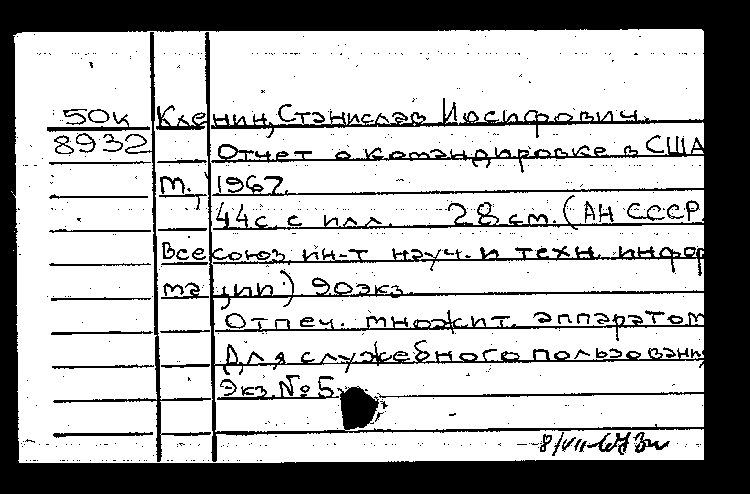 50к Кленин, Станислав Иосифович.
8932 Отчет о командировке в США
М., 1967.
44с. с илл. 28 см. (АН СССР.
Всесоюз. ин-т науч. и техн. инфор
ма ции) 90экз.
Отпеч. множит. аппаратом
Для служебного пользования
Экз. № 5